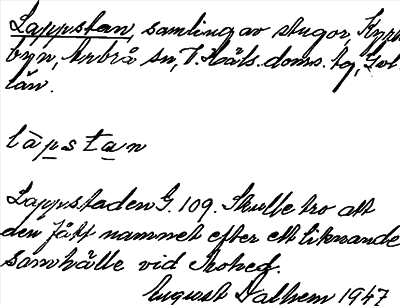 Lappstan, samling av stugor, Kyrk
byn, Arbrå sn, V. Häls. doms. tg, Gvl.
län.
làpstan
Lappstaden G. 109. Skulle tro att
den fått namnet efter ett liknande
samhälle vid
August Dalhem 1947